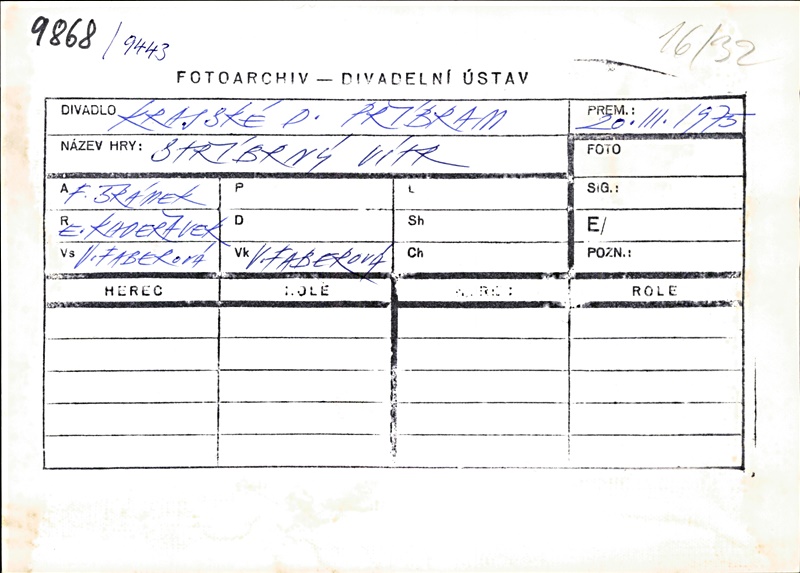 9868 / 9443
16/32
FOTOARCHIV — DIVADELNÍ ÚSTAV
DIVADLO KRAJSKÉ D. PŘÍBRAM
PREM.: 20. III. 1975
NÁZEV HRY: STŘÍBRNÝ VÍTR
FOTO
A F. ŠRÁMEK P L SIG.:
R E. KADEŘÁVEK D Sh E/
Vs V. FABEROVÁ Vk V. FABEROVÁ Ch POZN.:
HEREC ROLE HEREC ROLE